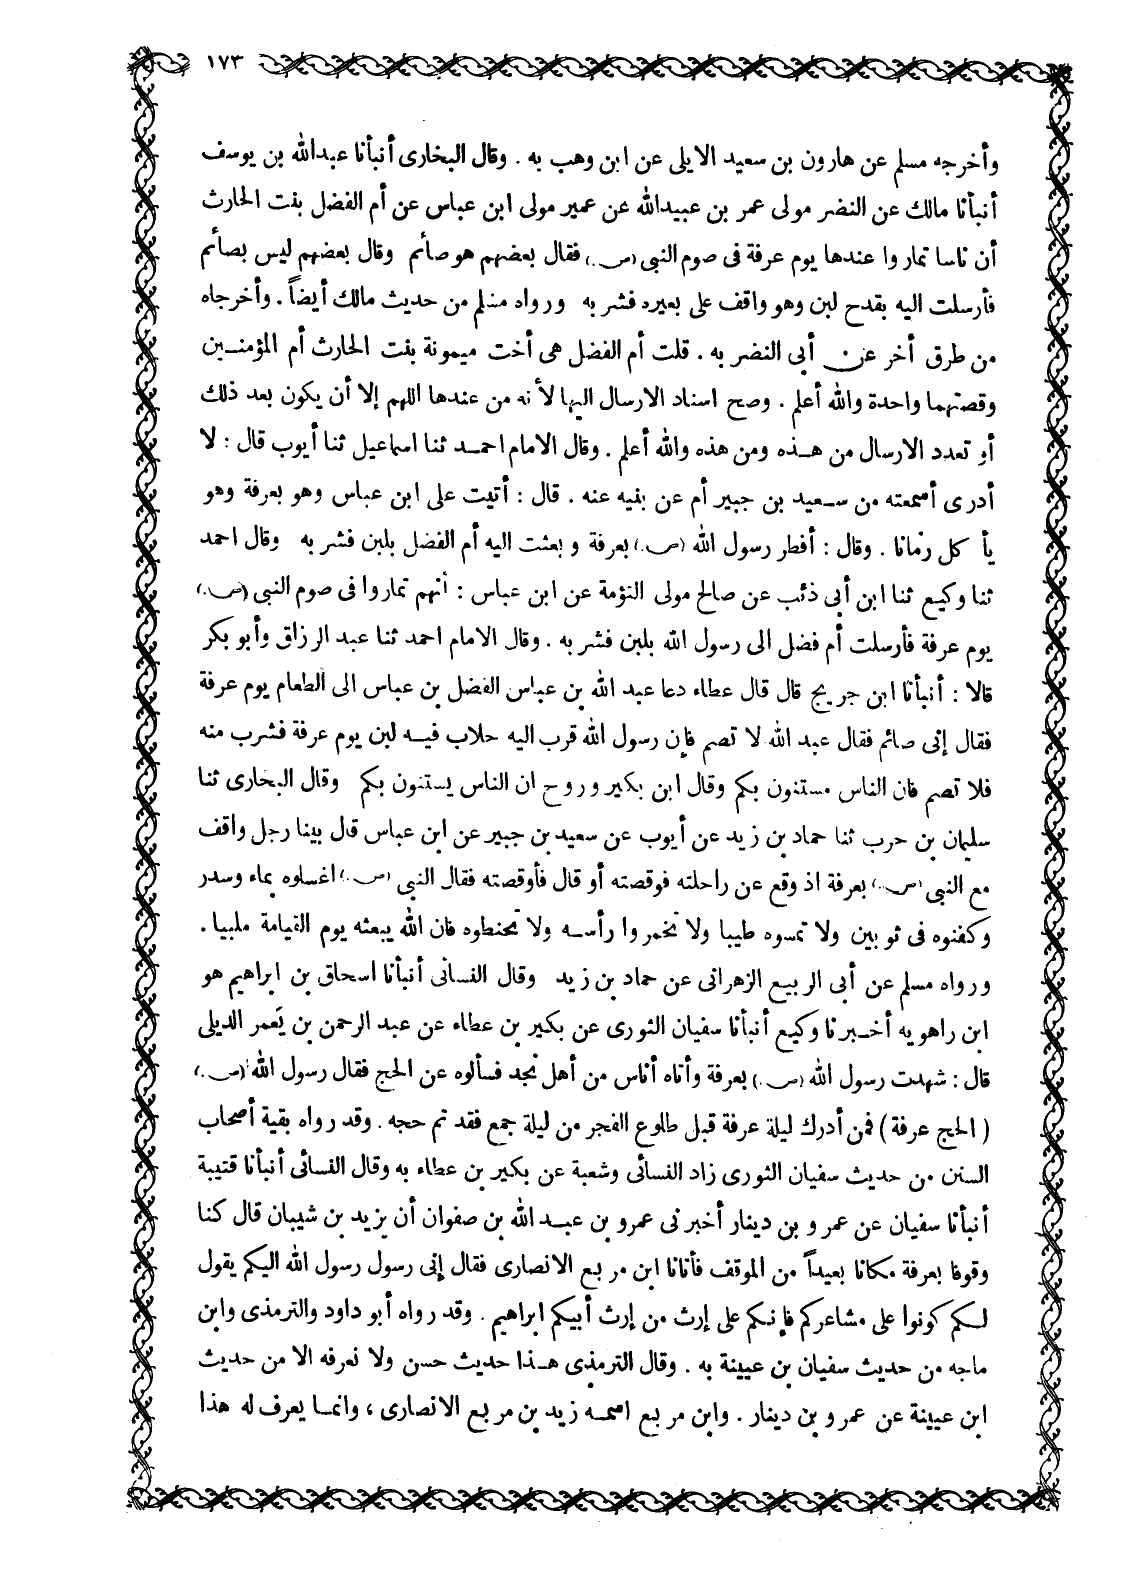 ١٧٣
وأخرجه مسلم عن هارون بن سعيد الايلى عن ابن وهب به . وقال البخارى أنبأنا عبدالله بن يوسف
أنبأنا مالك عن النضر مولى عمر بن عبيدالله عن عمير مولى ابن عباس عن أم الفضل بنت الحارث
أن ناسا تماروا عندها يوم عرفة فى صوم النبى (ص.) فقال بعضهم هو صائم وقال بعضهم ليس بصائم
فأرسلت اليه بقدح لبن وهو واقف على بعيره فشربه ورواه مسلم من حديث مالك أيضاً . وأخرجاه
من طرق أخر عن أبى النضر به . قلت أم الفضل هى أخت ميمونة بنت الحارث أم المؤمنين
وقصتهما واحدة والله أعلم . وصح اسناد الارسال اليها لأنه من عندها اللهم إلا أن يكون بعد ذلك
أو تعدد الارسال من هذه ومن هذه والله أعلم . وقال الامام احمد ثنا اسماعيل ثنا أيوب قال : لا
أدرى أسمعته من سعيد بن جبير أم عن بنيه عنه . قال : أتيت على ابن عباس وهو بعرفة وهو
يأكل رمانا . وقال : أفطر رسول الله (ص.) بعرفة و بعثت اليه أم الفضل بلبن فشربه وقال احمد
ثنا وكيع ثنا ابن أبى ذئب عن صالح مولى التؤمة عن ابن عباس : أنهم تماروا فى صوم النبى (ص.)
يوم عرفة فأرسلت أم فضل الى رسول الله بلبن فشربه . وقال الامام احمد ثنا عبد الرزاق وأبو بكر
قالا : أنبأنا ابن جريج قال قال عطاء دعا عبد الله بن عباس الفضل بن عباس الى الطعام يوم عرفة
فقال إنى صائم فقال عبد الله لا تصم فإن رسول الله قرب اليه حلاب فيه لبن يوم عرفة فشرب منه
فلا تصم فان الناس مستنون بكم وقال ابن بكير وروح ان الناس يستنون بكم وقال البخارى ثنا
سليمان بن حرب ثنا حماد بن زيد عن أيوب عن سعيد بن جبير عن ابن عباس قال بينا رجل واقف
مع النبى (ص.) بعرفة اذ وقع عن راحلته فوقصته أو قال فأوقصته فقال النبى (ص.) اغسلوه بماء وسدر
وكفنوه فى ثوبين ولا تمسوه طيبا ولا تخمروا رأسه ولا تحنطوه فان الله يبعثه يوم القيامة ملبيا .
ورواه مسلم عن أبى الربيع الزهرانى عن حماد بن زيد وقال النسائى أنبأنا اسحاق بن ابراهيم هو
ابن راهويه أخبرنا وكيع أنبأنا سفيان الثورى عن بكير بن عطاء عن عبد الرحمن بن يَعمر الديلى
قال : شهدت رسول الله (ص.) بعرفة وأتاه أناس من أهل نجد فسألوه عن الحج فقال رسول الله (ص.)
( الحج عرفة ) فمن أدرك ليلة عرفة قبل طلوع الفجر من ليلة جمع فقد تم حجه . وقد رواه بقية أصحاب
السنن من حديث سفيان الثورى زاد النسائى وشعبة عن بكير بن عطاء به وقال النسائى أنبأنا قتيبة
أنبأنا سفيان عن عمرو بن دينار أخبرنى عمرو بن عبد الله بن صفوان أن يزيد بن شيبان قال كنا
وقوفا بعرفة مكانا بعيداً من الموقف فأتانا ابن مربع الانصارى فقال إنى رسول رسول الله اليكم يقول
لكم كونوا على مشاعركم فإنكم على إرث من إرث أبيكم ابراهيم . وقد رواه أبو داود والترمذى وابن
ماجه من حديث سفيان بن عيينة به . وقال الترمذى هذا حديث حسن ولا نعرفه الا من حديث
ابن عيينة عن عمرو بن دينار . وابن مربع اسمه زيد بن مربع الانصارى ، وانما يعرف له هذا